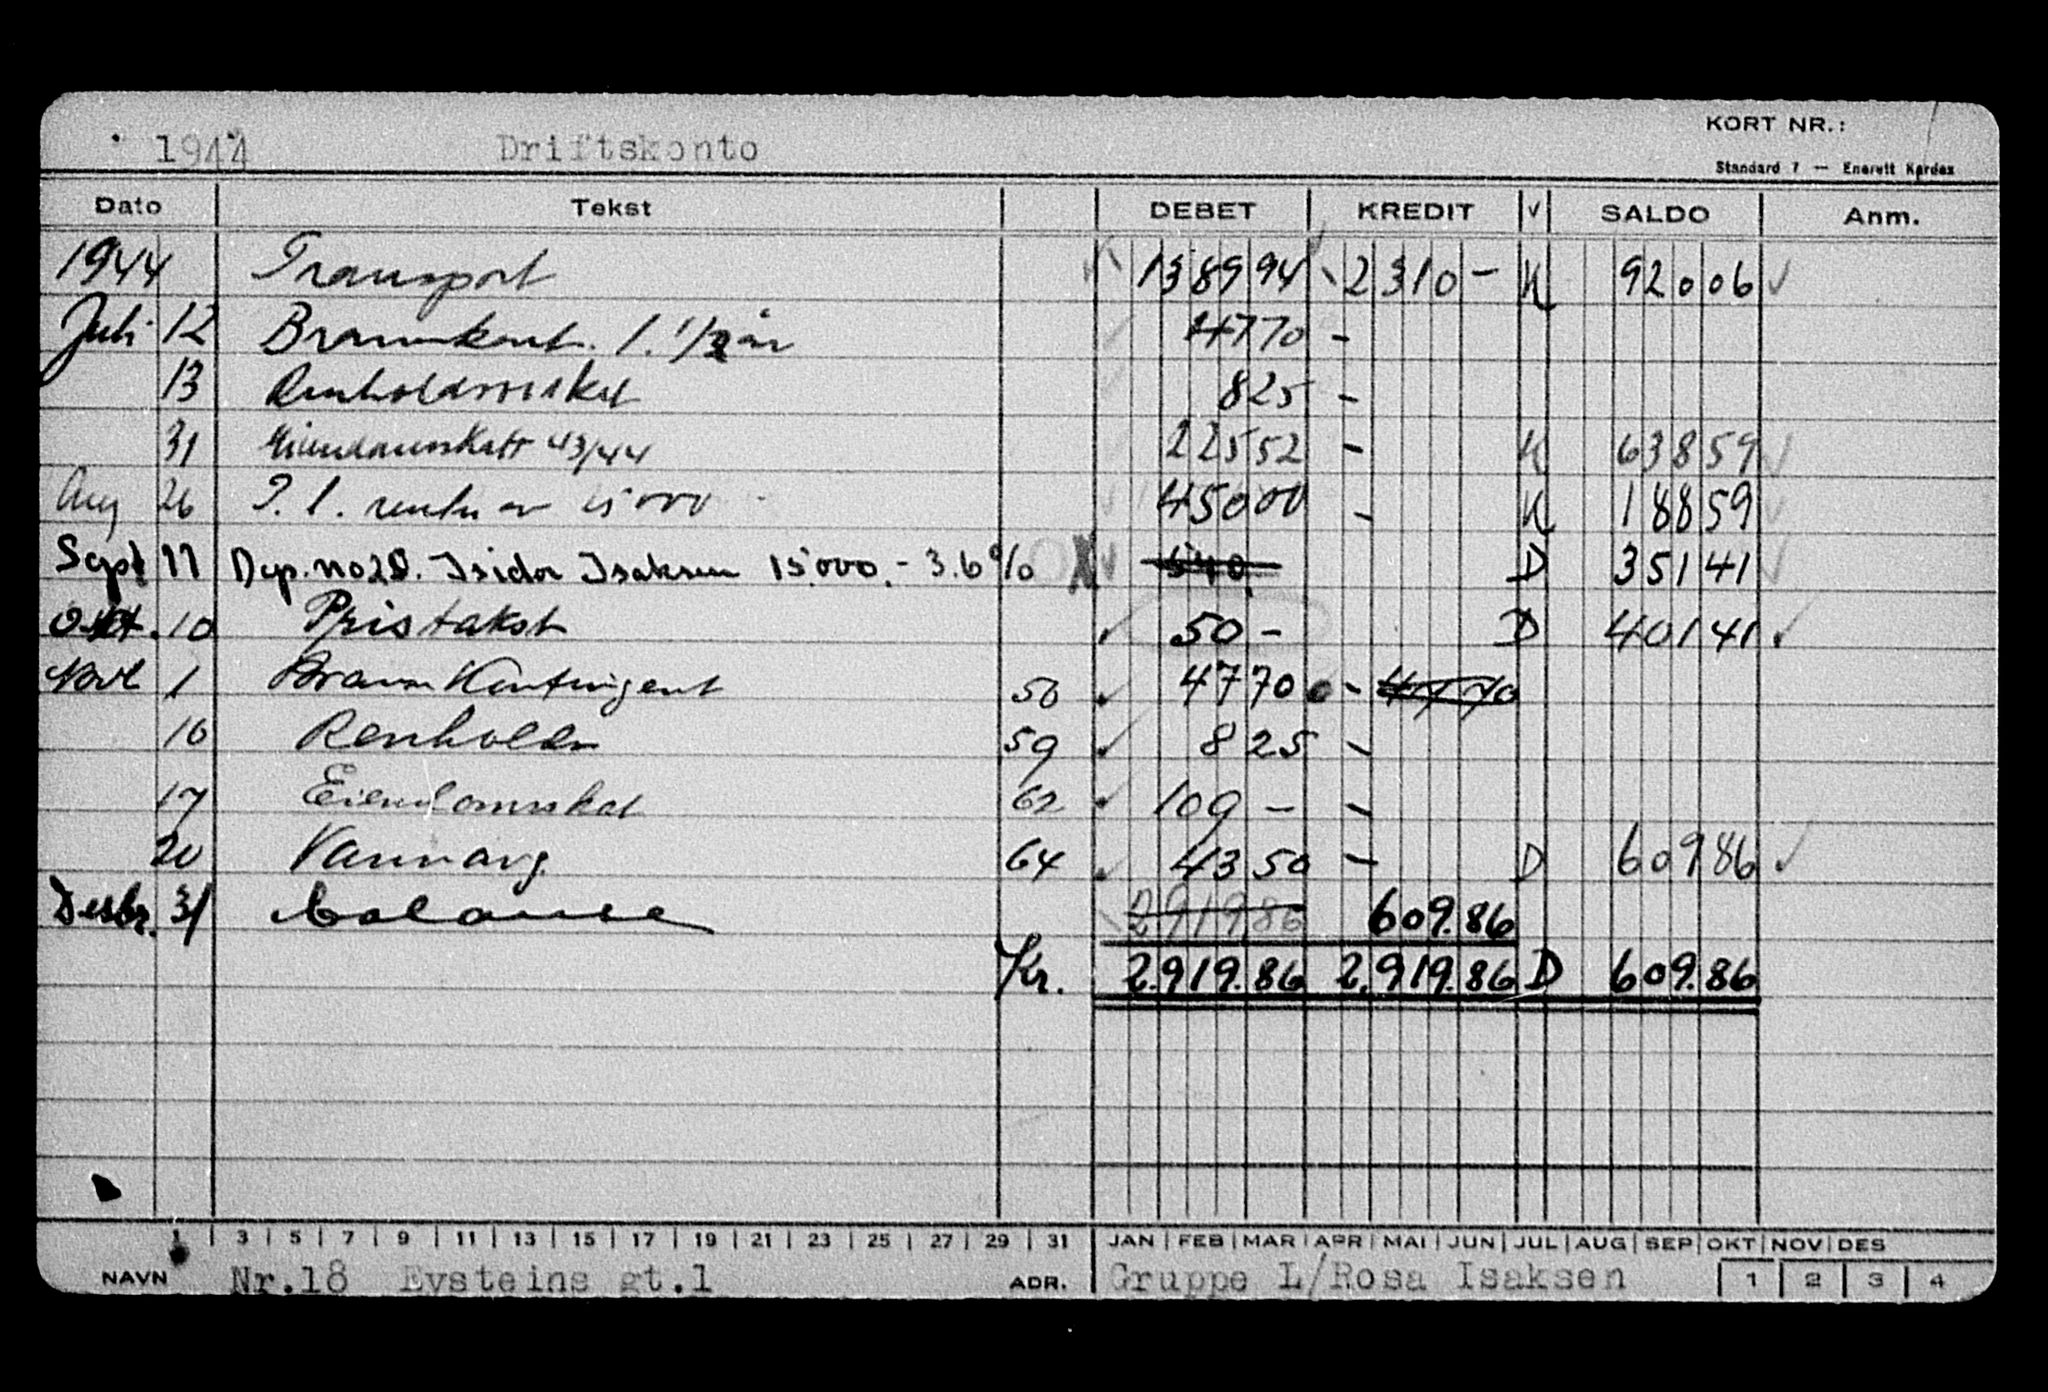 1944 Driftskonto KORT NR.:
Standard 7 — Enerett Kardex
Dato Tekst DEBET KREDIT V SALDO Anm.
1944 Transport 1389 94 2310 - K 920 06
Juli 12 Brannkont. 1. 1/2 år 47 70 -
13 Renholdsverket 8 25 -
31 Eiendomsskatt 43/44 225 52 - K 638 59
Aug 26 P. l. renter av 15 000 450 00 - K 188 59
Sept 11 Dep. no 28. Isidor Isaksen 15'000.- 3.6 % 540. D 351 41
Okt. 10 Pristakst 50 - D 401 41
Novb 1 Brann Kontingent 56 47 70 - 47 70
16 Renholdn 59 8 25 -
17 Eiendomsskat 62 109 - -
20 Vannavg. 64 43 50 - D 609 86
Desbr. 31 balanse 2919 86 609.86
Kr. 2.919.86 2.919.86 D 609.86
1 3 5 7 9 11 13 15 17 19 21 23 25 27 29 31 JAN FEB MAR APR MAI JUN JUL AUG SEP OKT NOV DES
NAVN Nr.18 Eysteins gt.1 ADR. Gruppe L/Rosa Isaksen 1 2 3 4